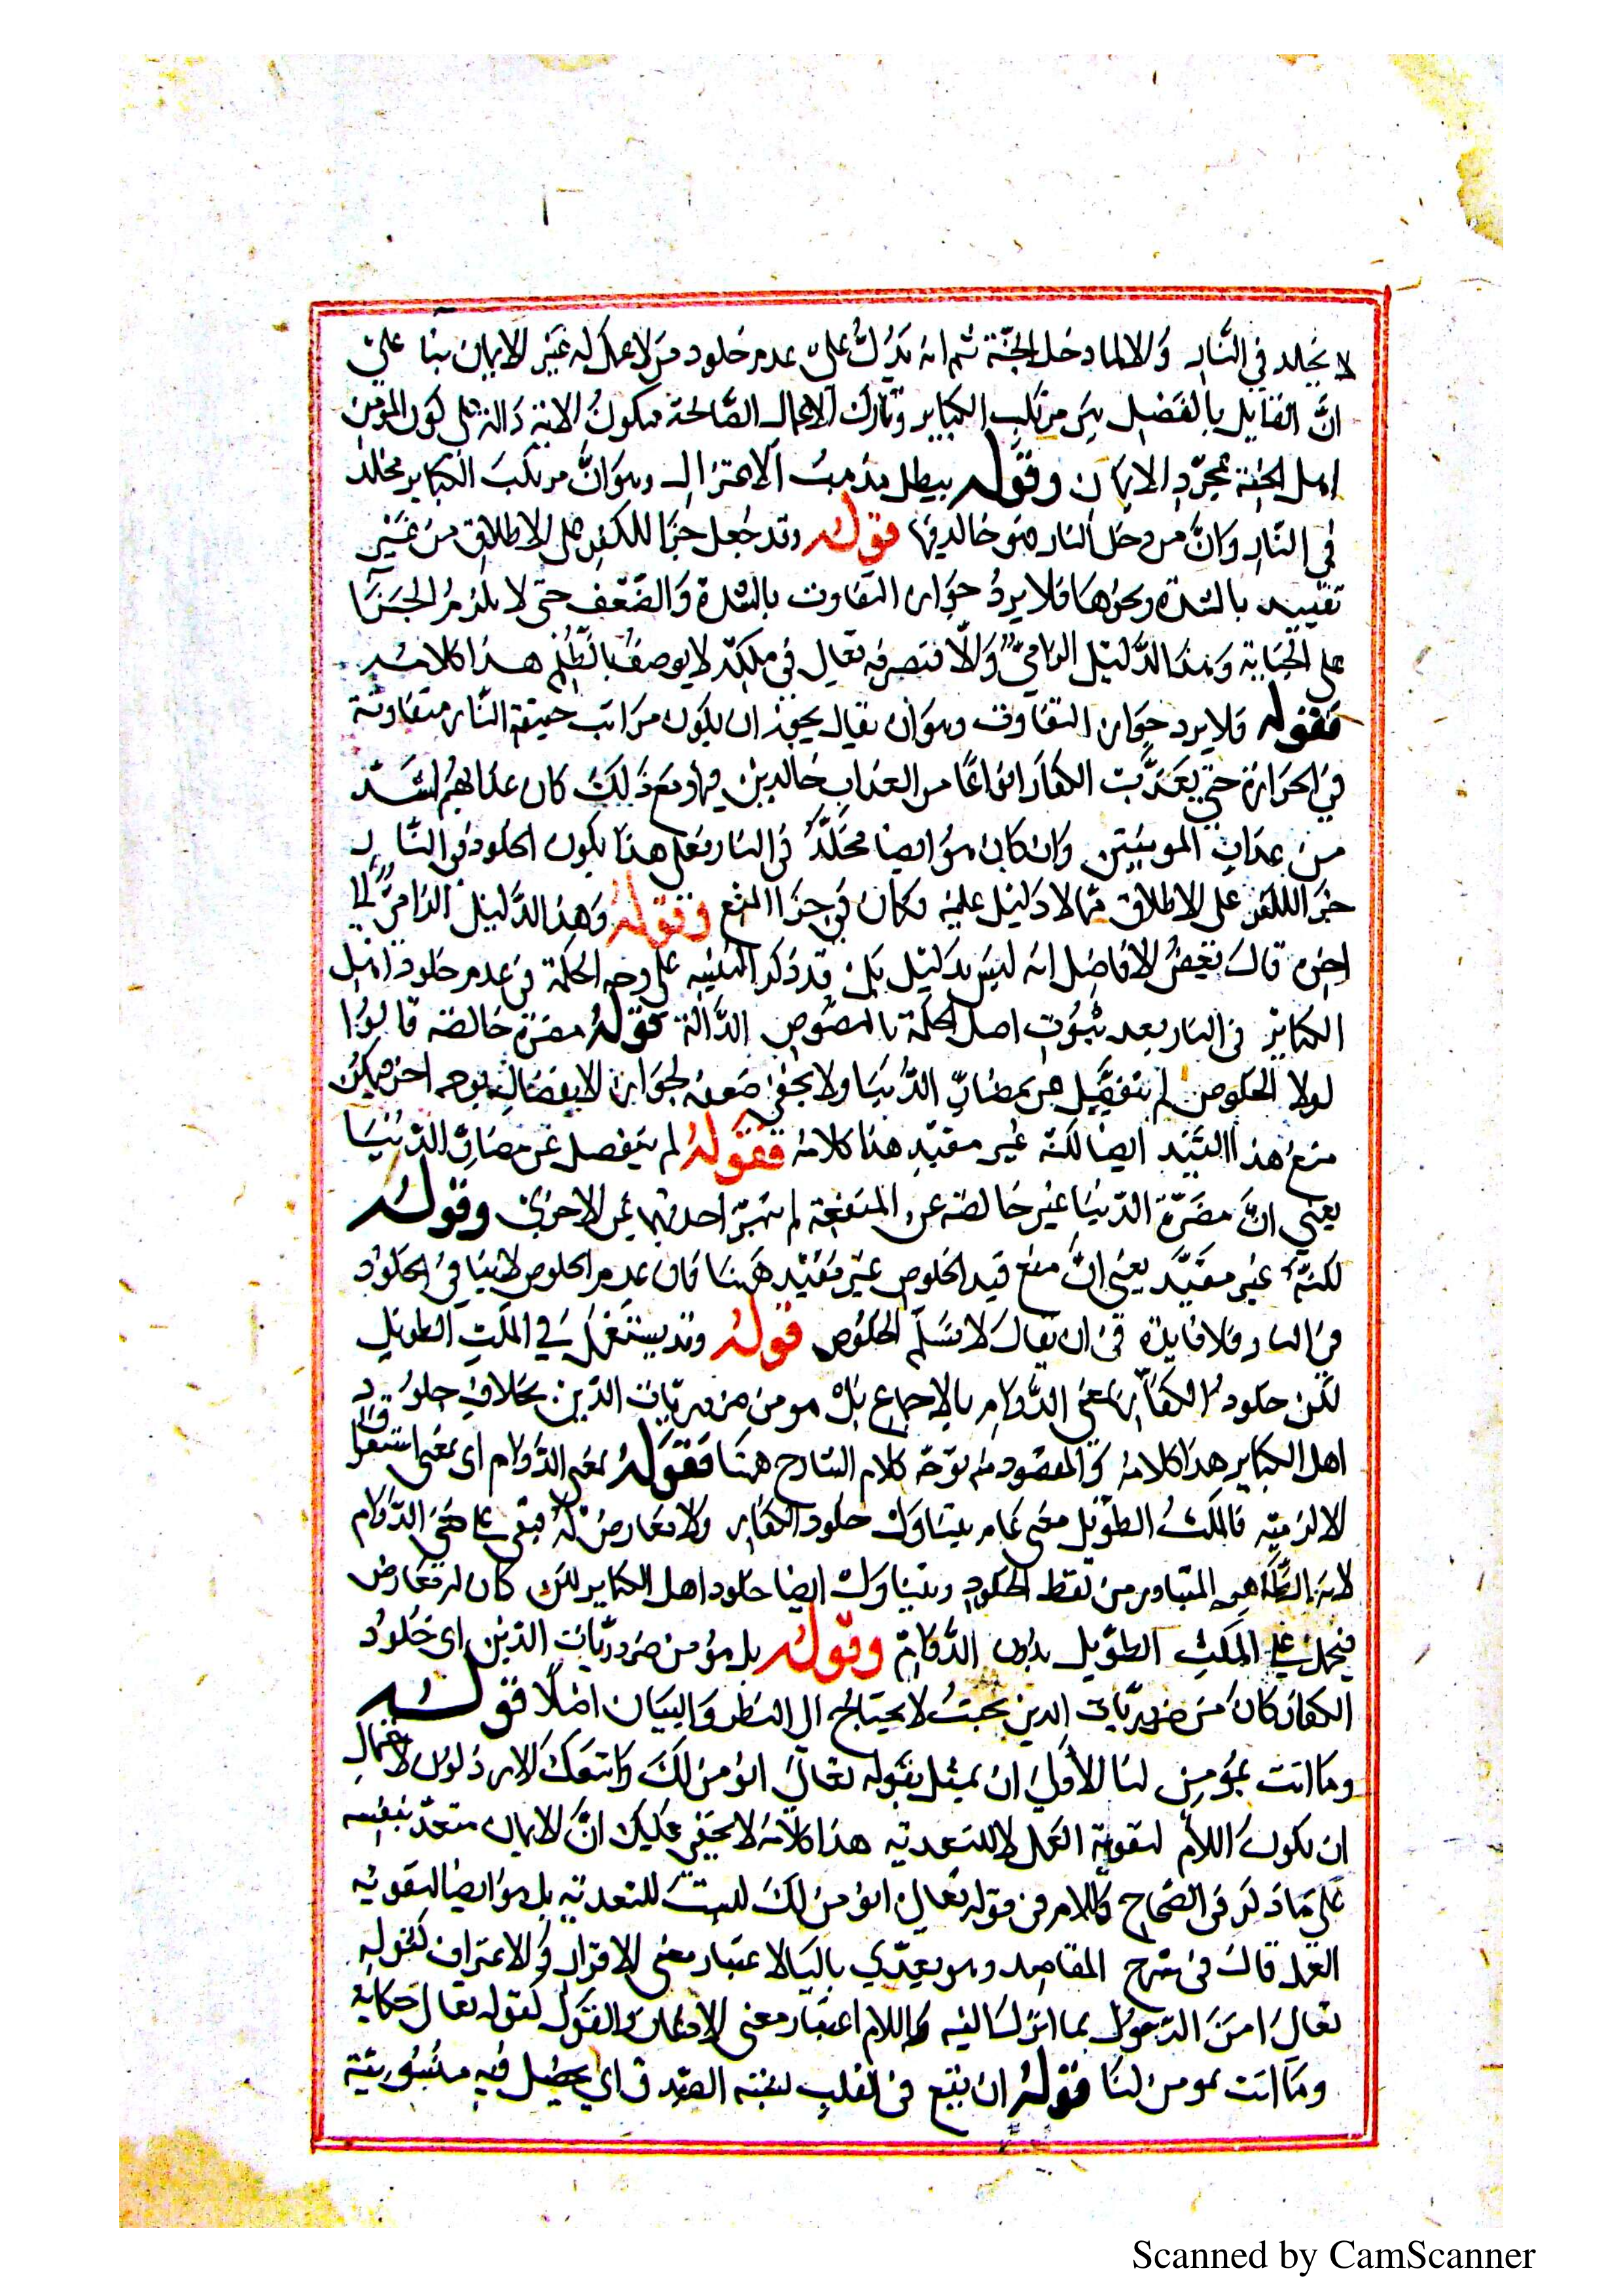 لا يخلد في النار والا لما دخل الجنة ثم انه يدل على عدم خلود من لا عمل له غير الايمان بنا على
ان القايل بالفصل بين مرتكب الكباير وتارك الاعمال الصالحة فيكون الاية دالة على كون المؤمن
اهل الجنة بمجرد الايمان وقوله يبطل مذهب الاعتزال وهو ان مرتكب الكباير مخلد
في النار وان من دخل النار فهو خالد فيها قوله وقد جعل جزا للكفر على الاطلاق من غير
تقييد بالشدة ونحوها فلا يرد جواز التفاوت بالشدة والضعف حتى لا يلزم الجزا
على الجناية وهذا الدليل الزامي والا فتصرفه تعالى في ملكه لا يوصف بالظلم هذا كلامه
فقوله فلا يرد جواز التفاوت وهو ان يقال يجوز ان يكون مراتب النار متفاوتة
في الحرارة حتى يعذب الكفار انواعا من العذاب خالدين فيها ومع ذلك كان عذابهم اشد
من عذاب المؤمنين وان كان هو ايضا مخلد في النار فعلى هذا يكون الخلود في النار
جزا الكفر على الاطلاق مما لا دليل عليه وكان في جزا المنع وقوله وهذا الدليل الزامي الى
اخره قال بعض الافاضل انه ليس بدليل بل قد ذكر التنبيه على وجه الحكمة في عدم خلود اهل
الكباير في النار بعد ثبوت اصل الحكمة بالنصوص الدالة قوله مضرة خالصة قالوا
لولا الخلوص لم ينفصل عن مضار الدنيا ولا يخفى ضعفه لجواز الانفصال بوجه اخر فيمكن
منع هذا القيد ايضا لكنه غير مفيد هذا كلامه فقوله لم ينفصل عن مضار الدنيا
يعني ان مضرة الدنيا غير خالصة عن المنفعة لم تميز احديهما عن الاخرى وقوله
لكنه غير مفيد يعني ان منع قيد الخلوص غير مفيد ههنا فان عدم الخلوص لا ينافي الخلود
في النار فلا فايدة في ان يقال لا نسلم الخلوص قوله وقد يستعمل في المكث الطويل
لكن خلود الكفار بمعنى الدوام بالاجماع بل هو من ضروريات الدين بخلاف خلود
اهل الكباير هذا كلامه والمقصود منه توجه كلام الشارح ههنا فقوله بمعنى الدوام اى بمعنى
الازمنة فالمكث الطويل معنى عام يتناول خلود الكفار ولا معارض له فبقى على معنى الدوام
لانه الظاهر المتبادر من لفظ الخلود ويتناول ايضا خلود اهل الكباير لكن كان له معارض
فيحمل على المكث الطويل بدون الدوام وقوله بل هو من ضروريات الدين اى خلود
الكفار كان من ضروريات الدين بحيث لا يحتاج الى النظر والبيان اصلا قوله
وما انت بمؤمن لنا الاولى ان يمثل بقوله تعالى انؤمن لك واتبعك الارذلون لاحتمال
ان يكون اللام لتقوية العمل لا للتعدية هذا كلامه لا يخفى عليك ان الايمان متعد بنفسه
على ما ذكر في الصحاح واللام في قوله تعالى انؤمن لك ليست للتعدية بل هو ايضا لتقوية
العمل قال في شرح المقاصد وهو يعدي بالبا لاعتبار معنى الاقرار والاعتراف كقوله
تعالى امن الرسول بما انزل اليه وباللام اعتبار معنى الاذعان والقبول كقوله تعالى حكاية
وما انت بمؤمن لنا قوله ان يقع في القلب نسبة الصدق اي يحصل فيه
Scanned by CamScanner